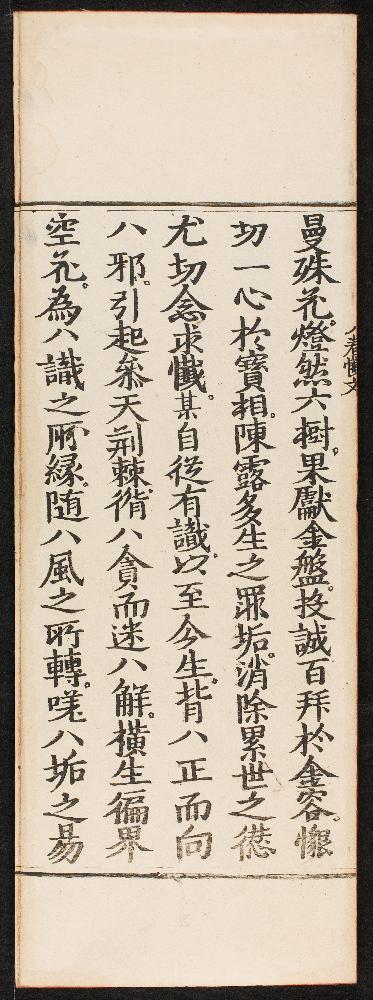 曼殊花。燈然六樹。果獻金盤。投誠百拜於金容。懺
切一心於寶相。陳露多生之罪垢。消除累世之愆
尤。切念求懺。某自從有識。以至今生。背八正而向
八邪。引起叅天荊棘。徇八貪而迷八解。橫生徧界
空花。為八識之所緣。隨八風之所轉。嘆八垢之易
八卷懺文